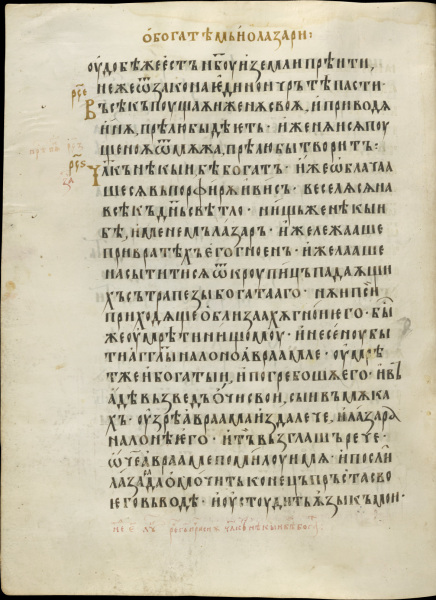 ѻ богатѣмь и ѻ лазари:
оудобѣже ѥстъ нб҃оу и земли прѣити,
неже ѿ закона ѥдинои чрътѣ пасти·
Вьсѣкъ поущаѧи женѫ своѫ, и приводѧ
инѫ, прѣлюбы дѣѥтъ· и женѧи сѧ поу
щеноѫ ѿ мѫжа, прѣлюбы творитъ:
Чл҃къ нѣкыи бѣ богатъ· иже ѡблачаа
ше сѧ въ порфирѫ и висъ· веселѧ сѧ на
всѣкъ дн҃ь свѣтло· нищь же нѣкыи
бѣ, именемь лазаръ, иже лежааше
при вратѣхъ ѥго гноенъ· и желааше
насытити сѧ ѿ кроупицъ падаѫщи
хъ съ трапезы богатааго· нѫ и пси
приходѧще ѻблизаахѫ гнои ѥго· бы
же оумрѣти нищомоу· и несеноу бы
ти агг҃лы на лоно авраамле· оумрѣ
т же и богатыи, и погребошѧ ѥго· и въ
адѣ възведъ ѻчи свои, сыи въ мѫка
хъ· оузрѣ авраама издалече, и лазарѧ
на лонѣ ѥго· и тъ възглашъ рече·
ѿче аврааме помилоуи мѧ· и посли
лазара да ѻмочитъ конецъ пръста сво
ѥго въ водѣ· и оустоудитъ ѧзыкъ мои·